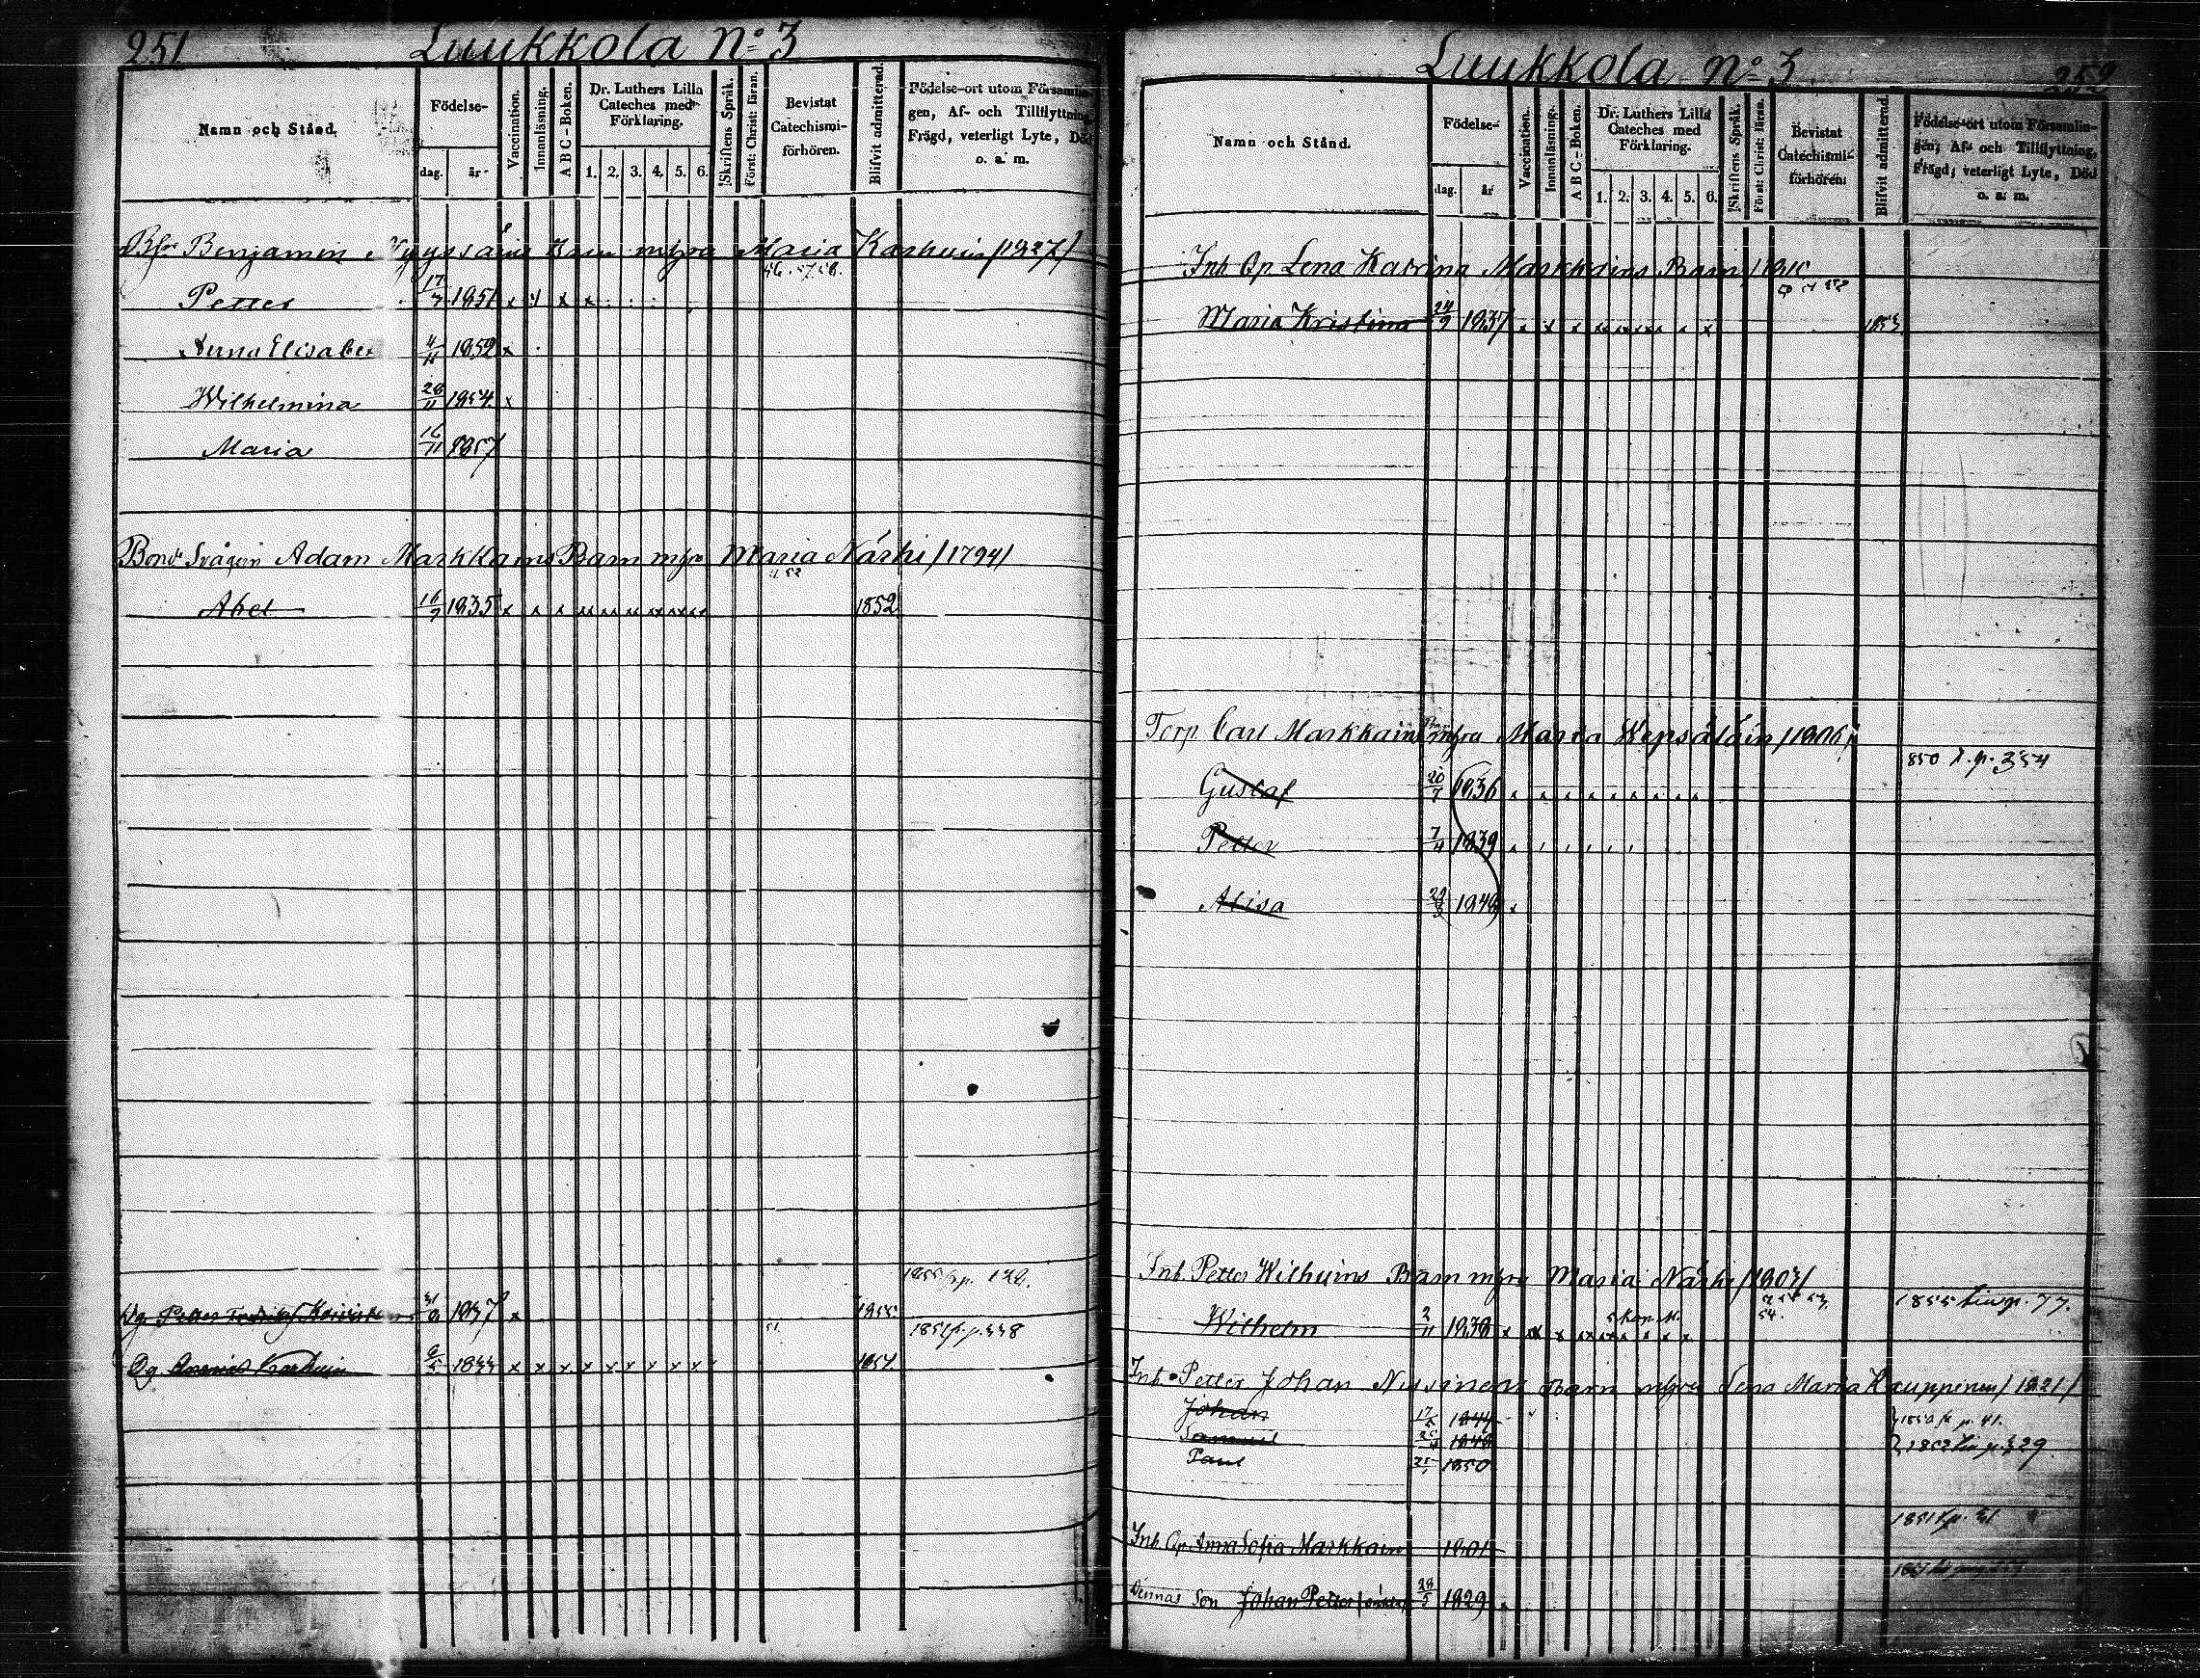 251 Luukkola No 3
Namn och Stånd. Födelse- dag. år Vaccination. Innanläsning. A B C-Boken. Dr. Luthers Lilla Cateches med Förklaring. 1. 2. 3. 4. 5. 6. Skriftens Språk. Först: Christ: läran. Bevistat Catechismi-förhören. Blifvit admitterad. Födelse-ort utom Församlingen, Af- och Tillflyttning, Frägd, veterligt Lyte, Död o. a. m.
Benjamin Barn m/fra Maria Karhuin /1827/
56. 57. 58.
Petter 17/7 1851 x x x
Anna Elisabet 4/11 1852 x
Wilhelmina 28/11 1854 x
Maria 16/11 1857
Bond Svågern Adam Markkains Barn m/fra Maria Närhi /1794/
52
Abel 16/7 1835 x x x xx xx xx xx xx xx 1852
1855 p. 132.
Dg. Petter 1837 x 1855
51. 1851 p. 338
Dg. Ananias Karhuin 1833 x x x x x x x x x 1851.
Luukkola No 3 252
Namn och Stånd. Födelse- dag. år Vaccination. Innanläsning. A B C-Boken. Dr. Luthers Lilla Cateches med Förklaring. 1. 2. 3. 4. 5. 6. Skriftens Språk. Först: Christ: läran. Bevistat Catechismi-förhören. Blifvit admitterad. Födelse-ort utom Församlingen, Af- och Tillflyttning, Frägd, veterligt Lyte, Död o. a. m.
Inh. Qp. Lena Katrina Markkains Barn /1810
Maria Kristina 24/9 1837 x x x xx xx xx x x 1853.
Torp. Carl Markkains Barn m/fra Maria Wepsäläin /1806/
850 t. p. 354
Gustaf 20/7 1836 x x x x x x x x x
Petter 7/4 1839
Alisa 1849 x
Inh. Petter Wilhuins Barn m/fra Maria Närhi /1803/
54. 1855 p. 77.
Wilhelm 2/11 1838 x xx x xx xx x x x x
Inh. Petter Johan Nissinens Barn m/fra Lena Maria Kauppinen /1821/
Johan 17/5 1844 p. 41.
Samuel 1848 1852 p. 329
Paul 1850
1851 p. 31
Inh. Qp. Anna Sofia Markkain 1801
Dennas Son Johan Petter 28/5 1829